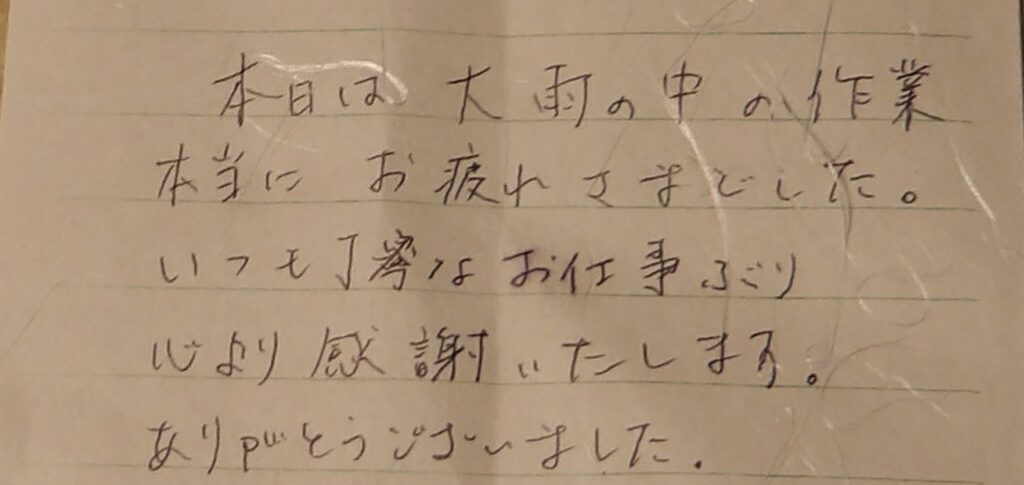 本日は大雨の中の作業
本当にお疲れさまでした。
いつも丁寧なお仕事ぶり
心より感謝いたします。
ありがとうございました.